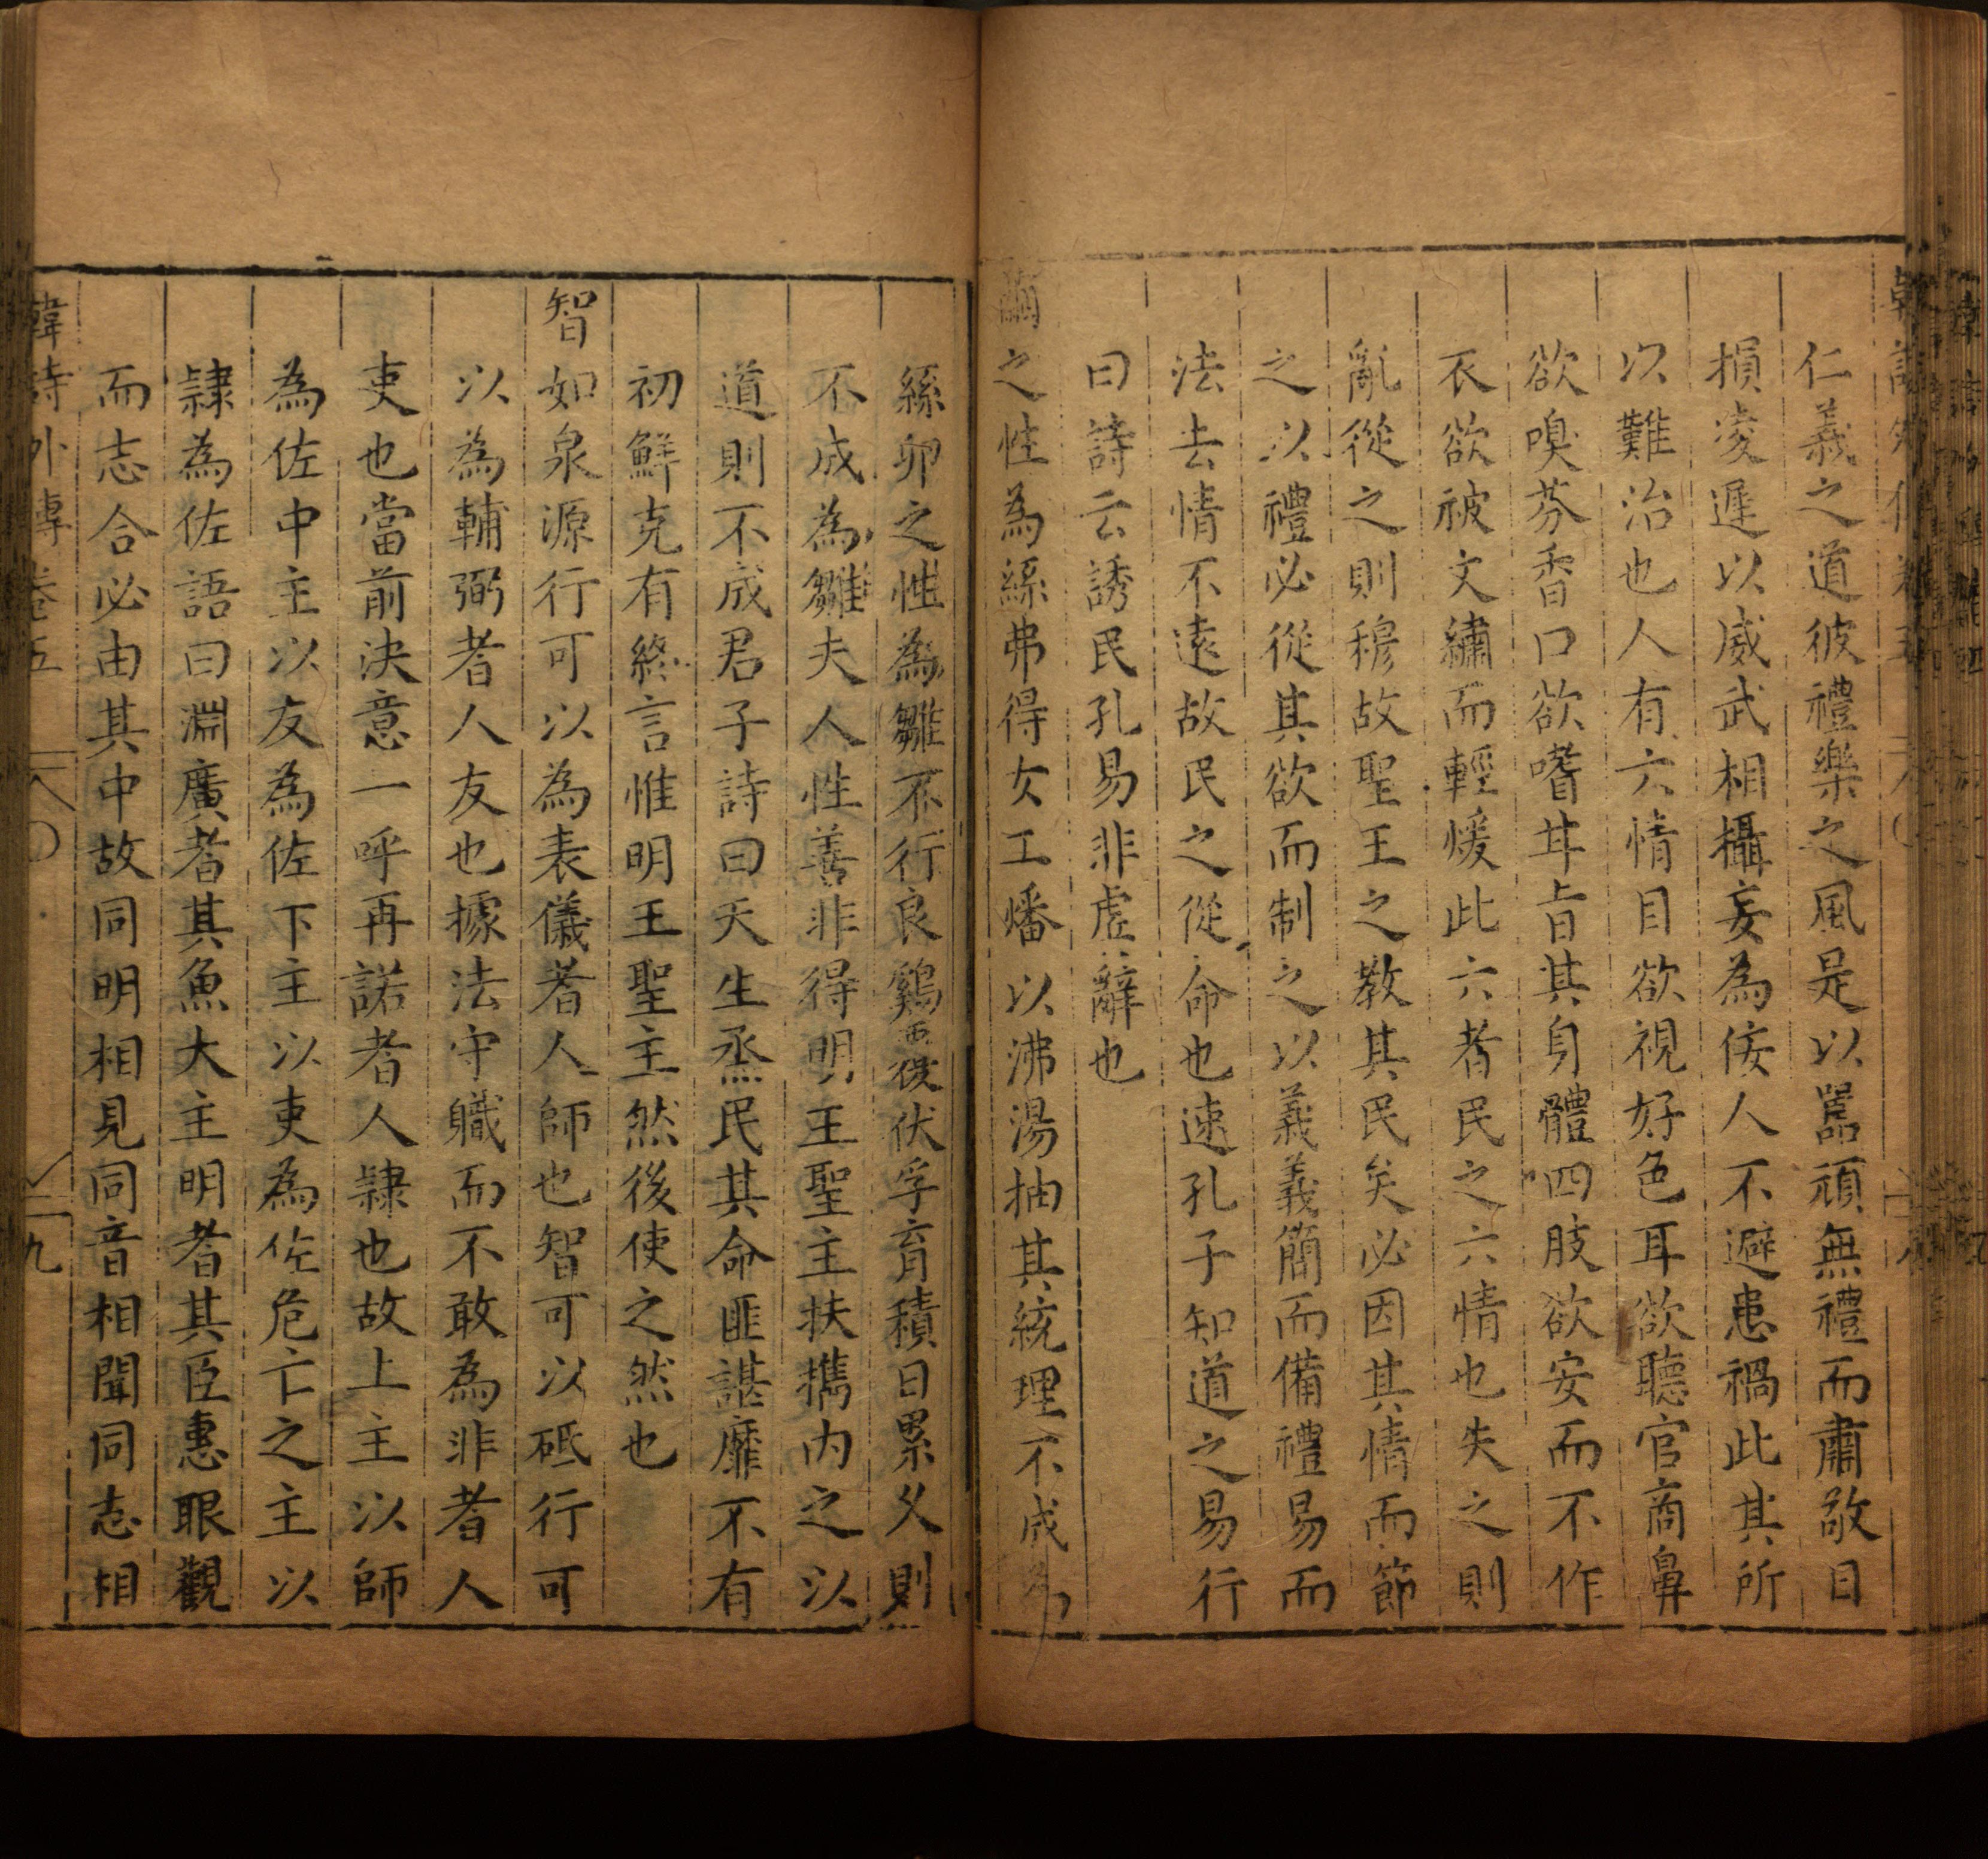 仁義之道彼禮樂之風是以嚚頑無禮而肅敬日
損凌遲以威武相攝妄為佞人不避患禍此其所
以難治也人有六情目欲視好色耳欲聽宮商鼻
欲嗅芬香口欲嗜甘旨其身體四肢欲安而不作
衣欲被文繡而輕煖此六者民之六情也失之則
亂從之則穆故聖王之教其民矣必因其情而節
之以禮必從其欲而制之以義義簡而備禮易而
法去情不遠故民之從命也速孔子知道之易行
曰詩云誘民孔易非虛辭也
繭之性為絲弗得女工燔以沸湯抽其統理不成為
絲卵之性為雛不行良雞覆伏孚育積日累久則
不成為雛夫人性善非得明王聖主扶攜內之以
道則不成君子詩曰天生烝民其命匪諶靡不有
初鮮克有終言惟明王聖主然後使之然也
智如泉源行可以為表儀者人師也智可以砥行可
以為輔弼者人友也據法守職而不敢為非者人
吏也當前決意一呼再諾者人隸也故上主以師
為佐中主以友為佐下主以吏為佐危亡之主以
隸為佐語曰淵廣者其魚大主明者其臣惠眼觀
而志合必由其中故同明相見同音相聞同志相
韓詩外傳 卷五 九